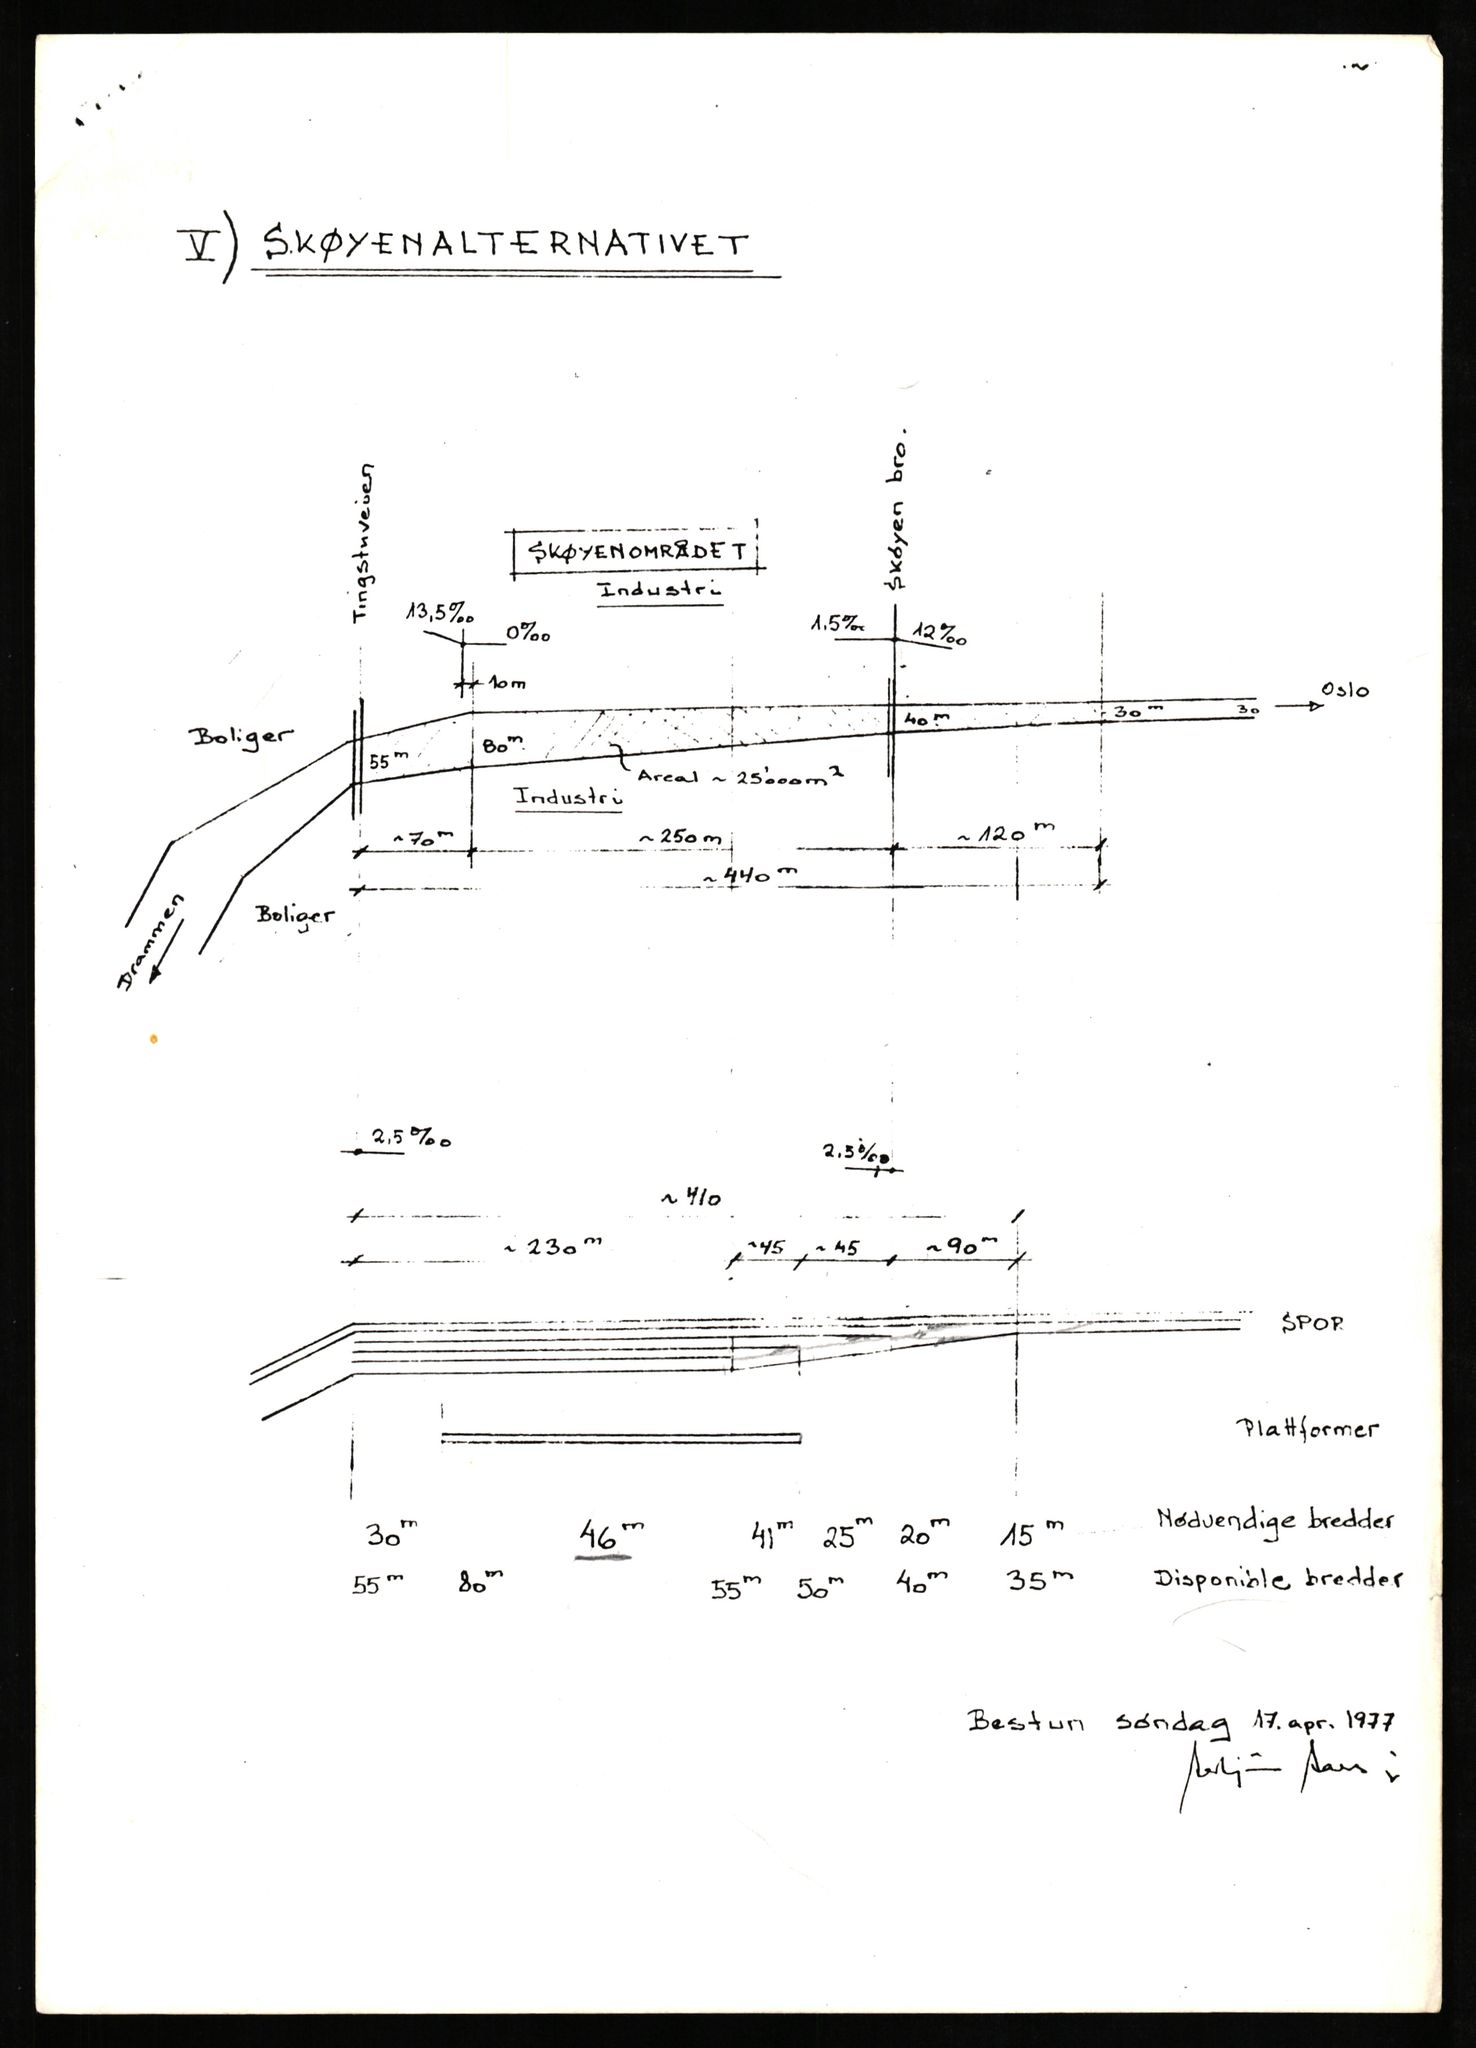 V) SKØYENALTERNATIVET
Tingstuveien
Skøyen bro.
SKØYENOMRÅDET
Industri
13,5‰ 0‰
1,5‰ 12‰
10m
Oslo
Boliger
55m 80m 40m 30m 30
Areal ~ 25'000m²
Industri
~70m ~250m ~120m
~440m
Boliger
Drammen
2,5‰ 2,5‰
~410
~230m ~45 ~45 ~90m
SPOR
Plattformer
30m 46m 41m 25m 20m 15m Nødvendige bredder
55m 80m 55m 50m 40m 35m Disponible bredder
Bestun søndag 17. apr. 1977